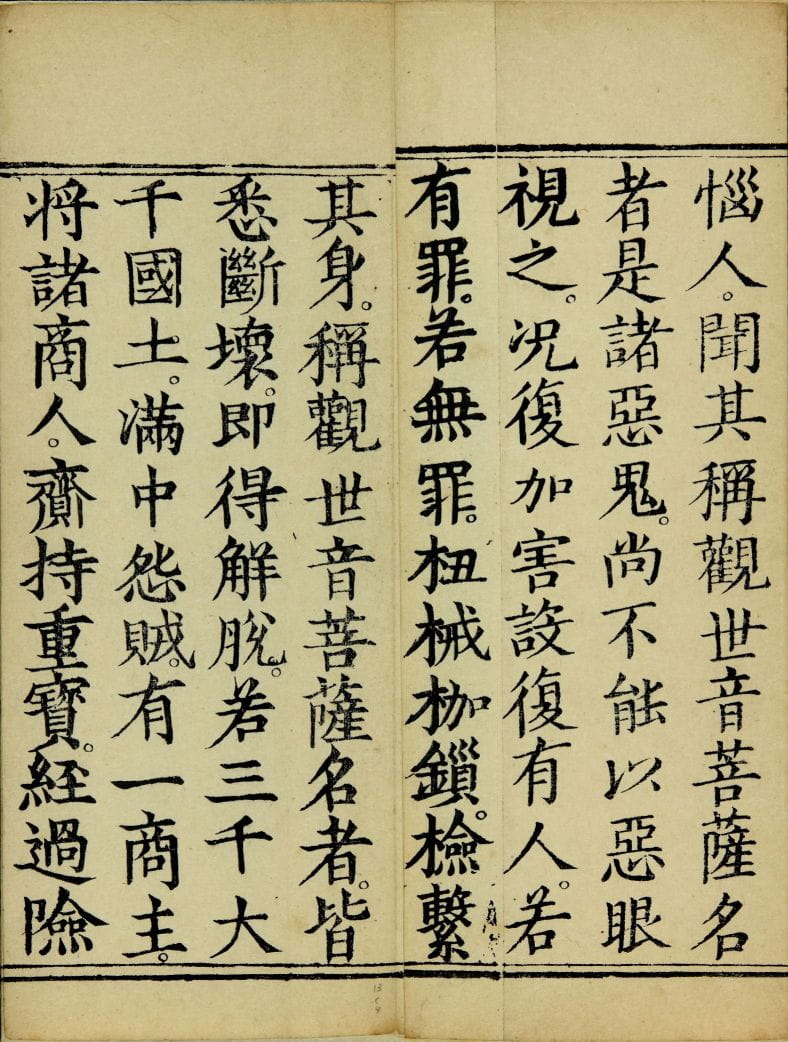 惱人。聞其稱觀世音菩薩名
者是諸惡鬼。尚不能以惡眼
視之。况復加害設復有人。若
有罪。若無罪。杻械枷鎖。檢繫
其身。稱觀世音菩薩名者。皆
悉斷壞。即得解脫。若三千大
千國土。滿中怨賊。有一商主。
将諸商人。齎持重寶。經過險